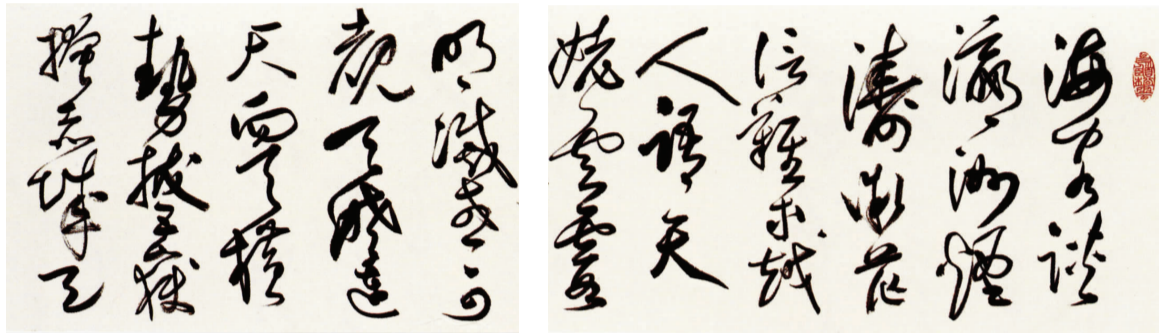 海客談
瀛洲煙
濤微茫
信難求越
人語天
姥雲霓
明滅或可
覩天姥連
天向天橫
勢拔五嶽
掩赤城天